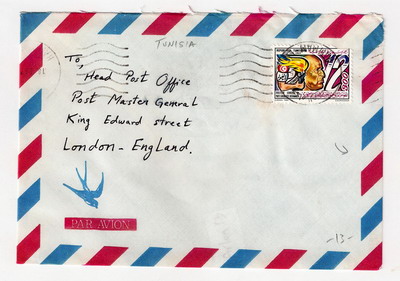 TUNISIA
To,
Head Post Office
Post Master General
King Edward street
London - England.
PAR AVION
-13-